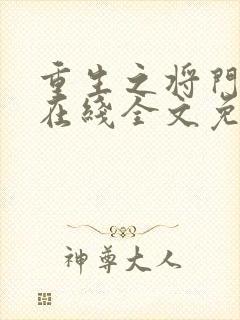 重生之将門
在綫全文免
神尊大人